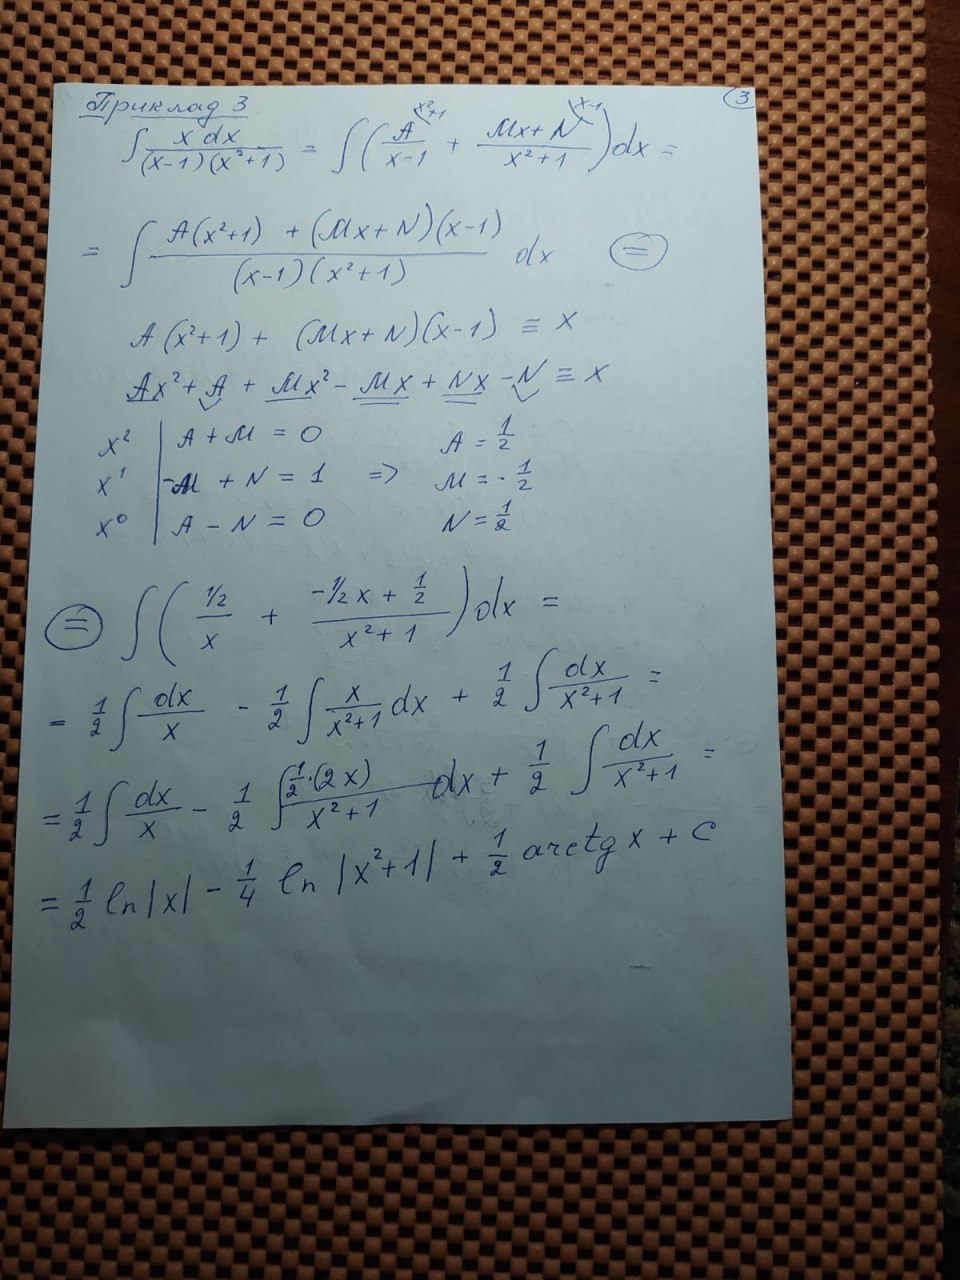 Приклад 3
③
∫ x dx / (x-1)(x²+1) = ∫ ( A / x-1 + Mx+N / x²+1 ) dx =
x²+1
x-1
= ∫ A(x²+1) + (Mx+N)(x-1) / (x-1)(x²+1) dx ⊜
A(x²+1) + (Mx+N)(x-1) ≡ x
Ax² + A + Mx² - Mx + Nx - N ≡ x
x² | A + M = 0 A = 1/2
x¹ | -M + N = 1 => M = -1/2
x⁰ | A - N = 0 N = 1/2
⊜ ∫ ( 1/2 / x + -1/2 x + 1/2 / x² + 1 ) dx =
= 1/2 ∫ dx / x - 1/2 ∫ x / x²+1 dx + 1/2 ∫ dx / x²+1 =
= 1/2 ∫ dx / x - 1/2 ∫ 1/2·(2x) / x²+1 dx + 1/2 ∫ dx / x²+1 =
= 1/2 ln|x| - 1/4 ln|x²+1| + 1/2 arctg x + C